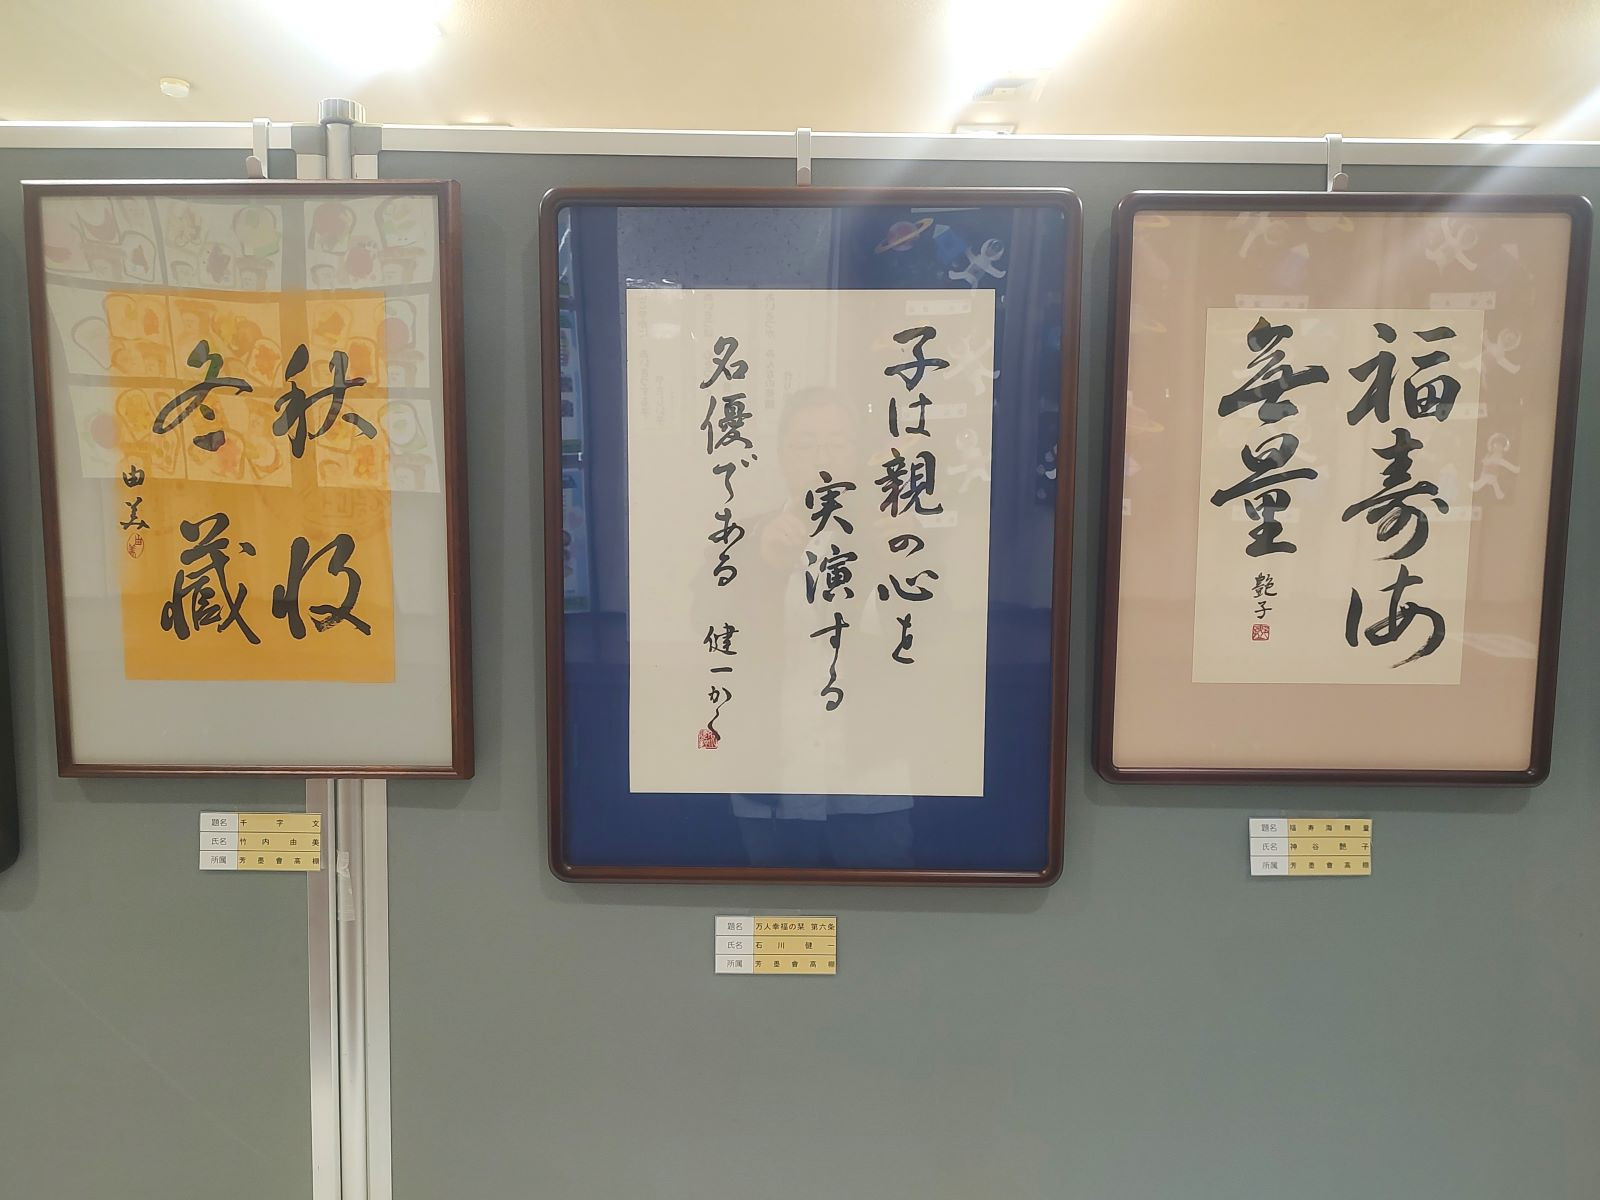 秋收
冬蔵
由美
題名 千字文
氏名 竹内由美
所属 芳墨會高棚
子は親の心を
実演する
名優である
健一かく
題名 万人幸福の栞 第六条
氏名 石川健一
所属 芳墨會高棚
福寿海
無量
艶子
題名 福寿海無量
氏名 神谷艶子
所属 芳墨會高棚